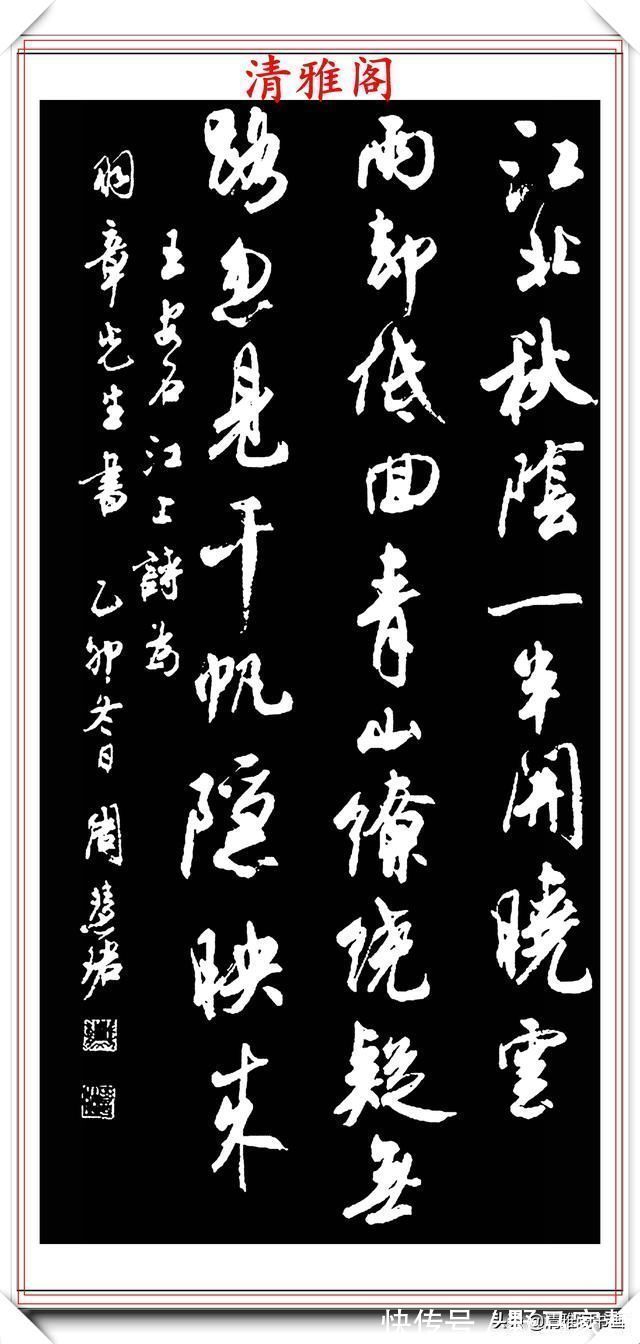 清雅阁
江北秋陰一半開曉雲
雨却低回青山繚繞疑無
路忽見千帆隱映来
王安石江上詩為
章先生書 乙卯冬日 周慧珺
头条@清雅阁书画
快传号